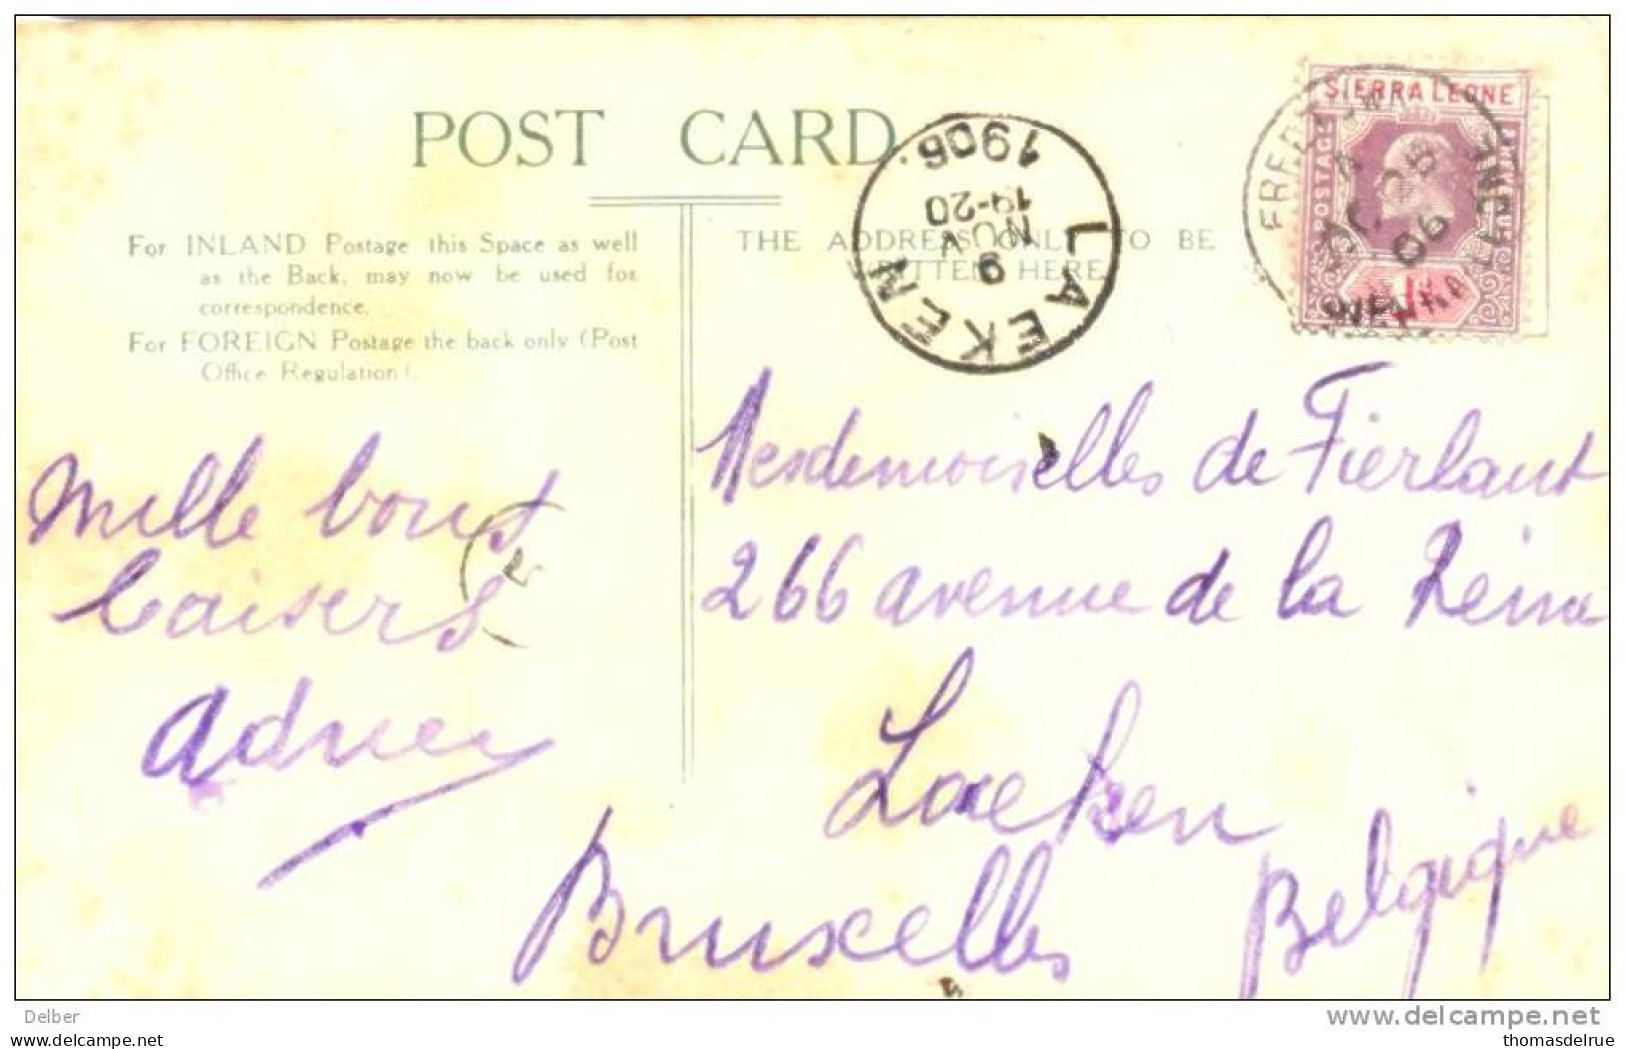 POST CARD
For INLAND Postage this Space as well
as the Back, may now be used for
correspondence.
For FOREIGN Postage the back only (Post
Office Regulation).
THE ADDRESS ONLY TO BE
WRITTEN HERE
LAEKEN
9
NOV
19-20
1906
SIERRA LEONE
POSTAGE
REVENUE
1d
FREETOWN
OC 25
06
SIERRA LEONE
Mille bons
baisers
Mesdemoiselles de Fierlant
266 avenue de la Reine
Laeken
Bruxelles Belgique
Delber
www.delcampe.net
thomasdelrue